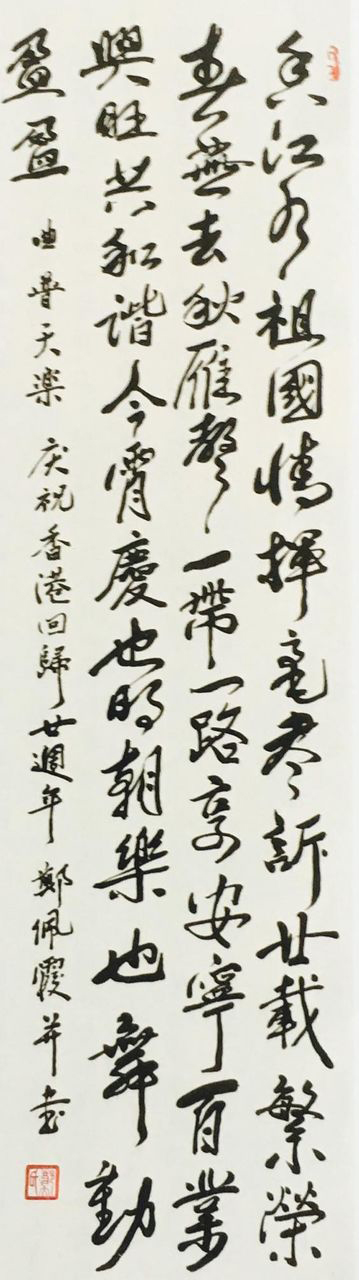 香江祖國情揮毫盡訴廿載繁榮
春燕去秋雁聲一帶一路享安寧百業
興旺共和諧今宵慶也明朝樂也舞動
盈盈 曲普天楽 庆祝香港回歸廿週年 鄭佩霞并書